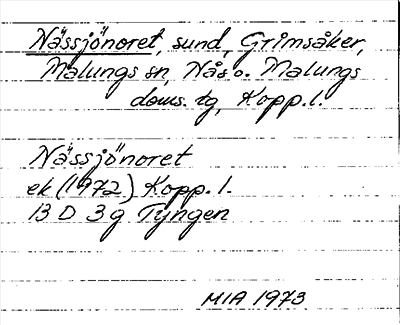 Nässjönoret, sund, Grimsåker,
Malungs sn, Nås o. Malungs
doms. tg, Kopp. l.
Nässjönoret
ek (1972) Kopp. l.
13 D 3g Tyngen
MIA 1973